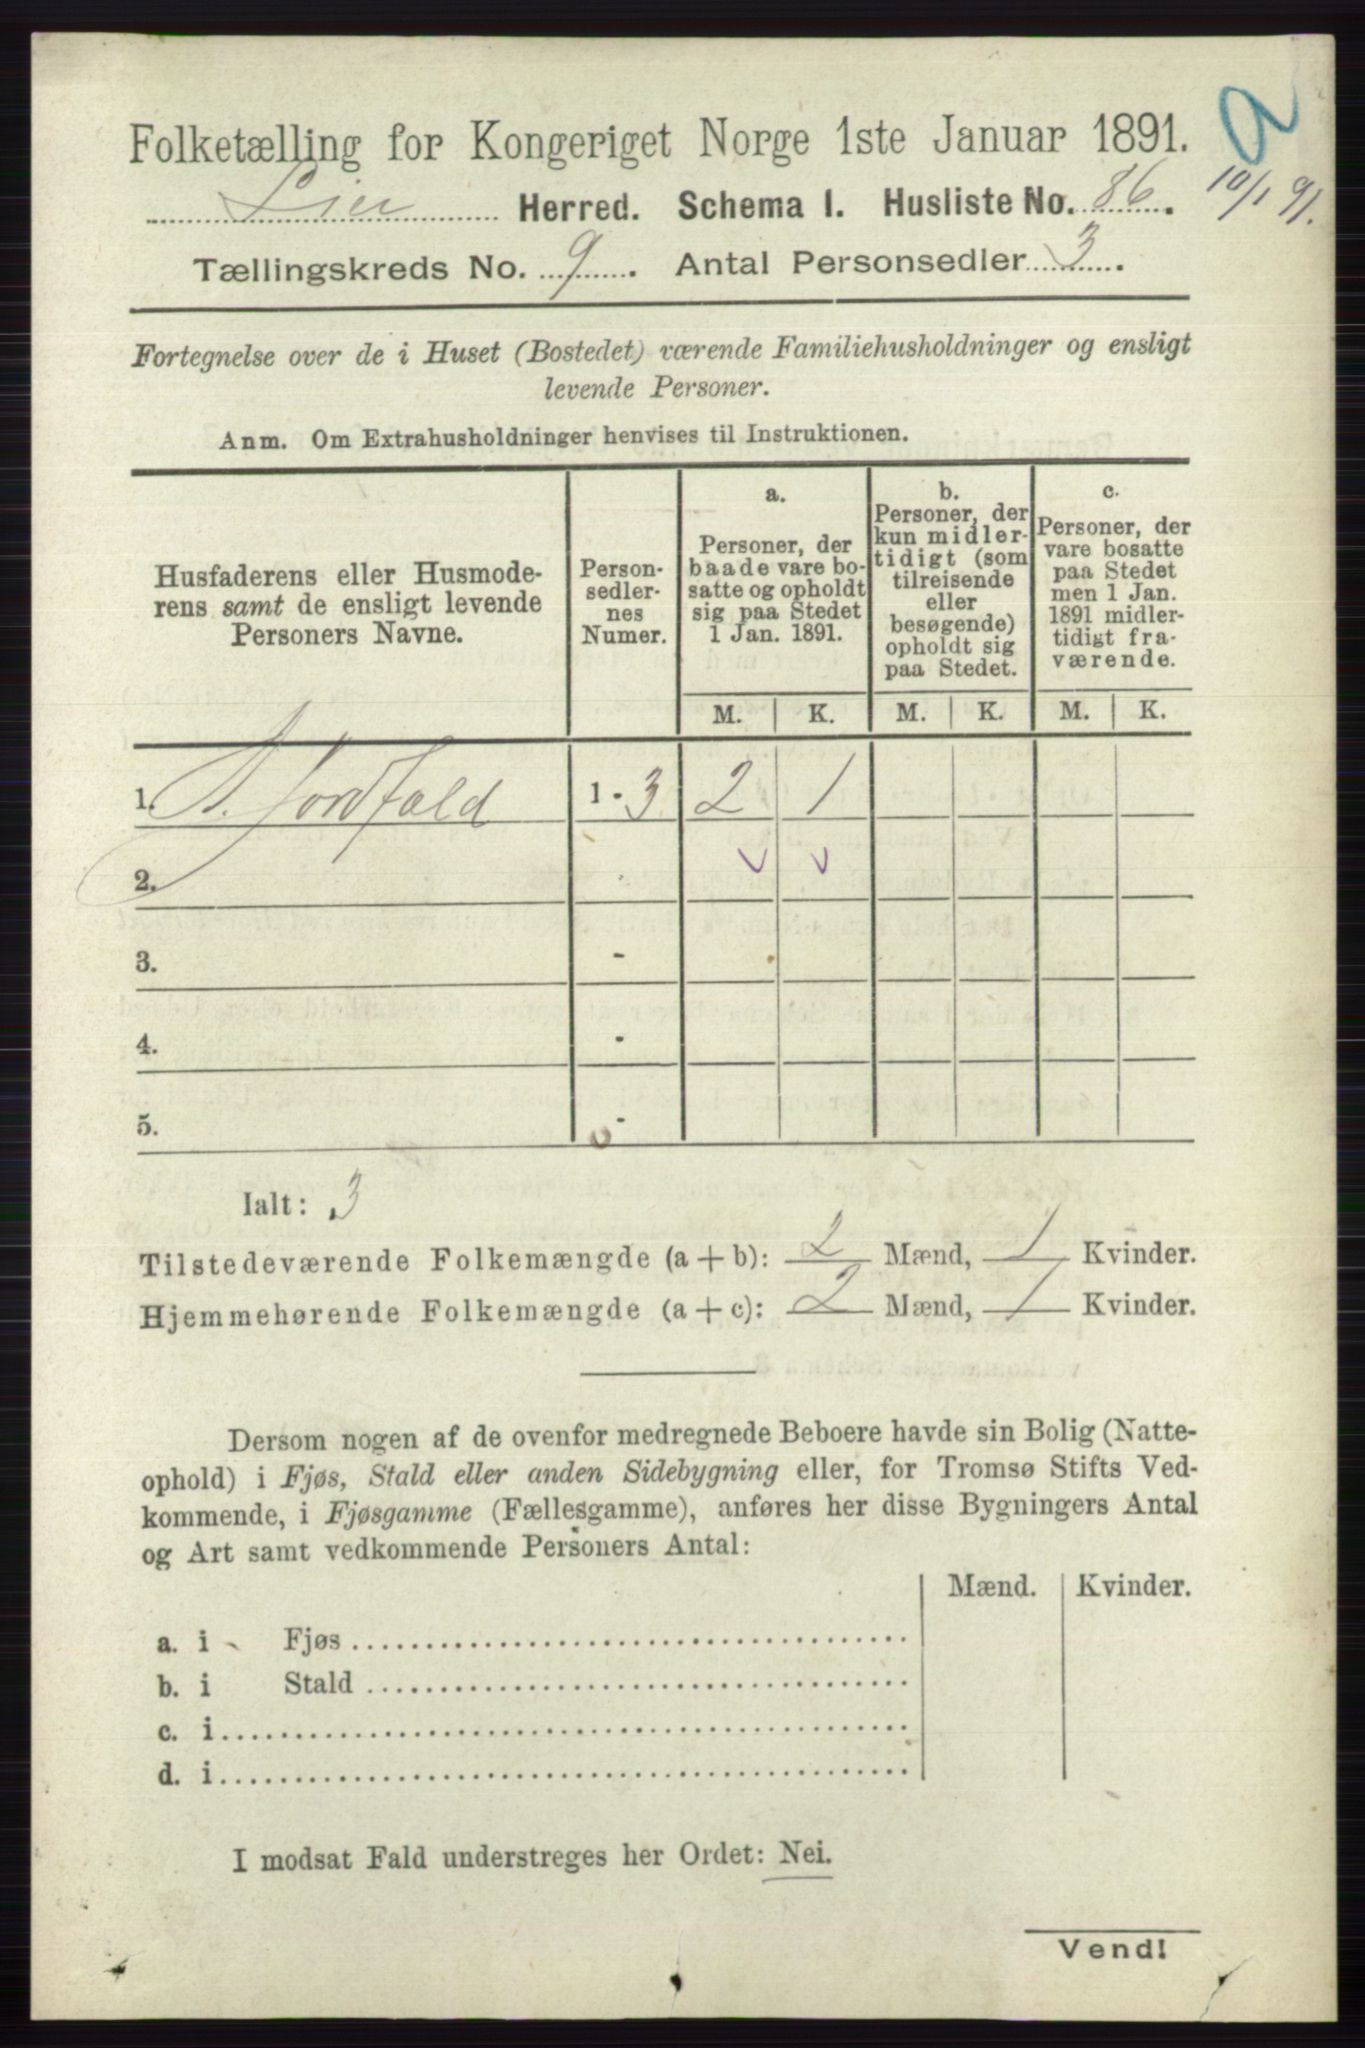 Folketælling for Kongeriget Norge 1ste Januar 1891.
Lier Herred. Schema I. Husliste No. 86. 10/1 91.
Tællingskreds No. 9. Antal Personsedler 3.
Fortegnelse over de i Huset (Bostedet) værende Familiehusholdninger og ensligt
levende Personer.
Anm. Om Extrahusholdninger henvises til Instruktionen.
Husfaderens eller Husmode-
rens samt de ensligt levende
Personers Navne.
Person-
sedler-
nes
Numer.
a.
Personer, der
baade vare bo-
satte og opholdt
sig paa Stedet
1 Jan. 1891.
b.
Personer, der
kun midler-
tidigt (som
tilreisende
eller
besøgende)
opholdt sig
paa Stedet.
c.
Personer, der
vare bosatte
paa Stedet
men 1 Jan.
1891 midler-
tidigt fra-
værende.
M. K. M. K. M. K.
1. 1 - 3 2 1
2. -
3. -
4. -
5. -
Ialt: 3
Tilstedeværende Folkemængde (a + b): 2 Mænd, 1 Kvinder.
Hjemmehørende Folkemængde (a + c): 2 Mænd, 1 Kvinder.
Dersom nogen af de ovenfor medregnede Beboere havde sin Bolig (Natte-
ophold) i Fjøs, Stald eller anden Sidebygning eller, for Tromsø Stifts Ved-
kommende, i Fjøsgamme (Fællesgamme), anføres her disse Bygningers Antal
og Art samt vedkommende Personers Antal:
Mænd. Kvinder.
a. i Fjøs
b. i Stald
c. i
d. i
I modsat Fald understreges her Ordet: Nei.
Vend!